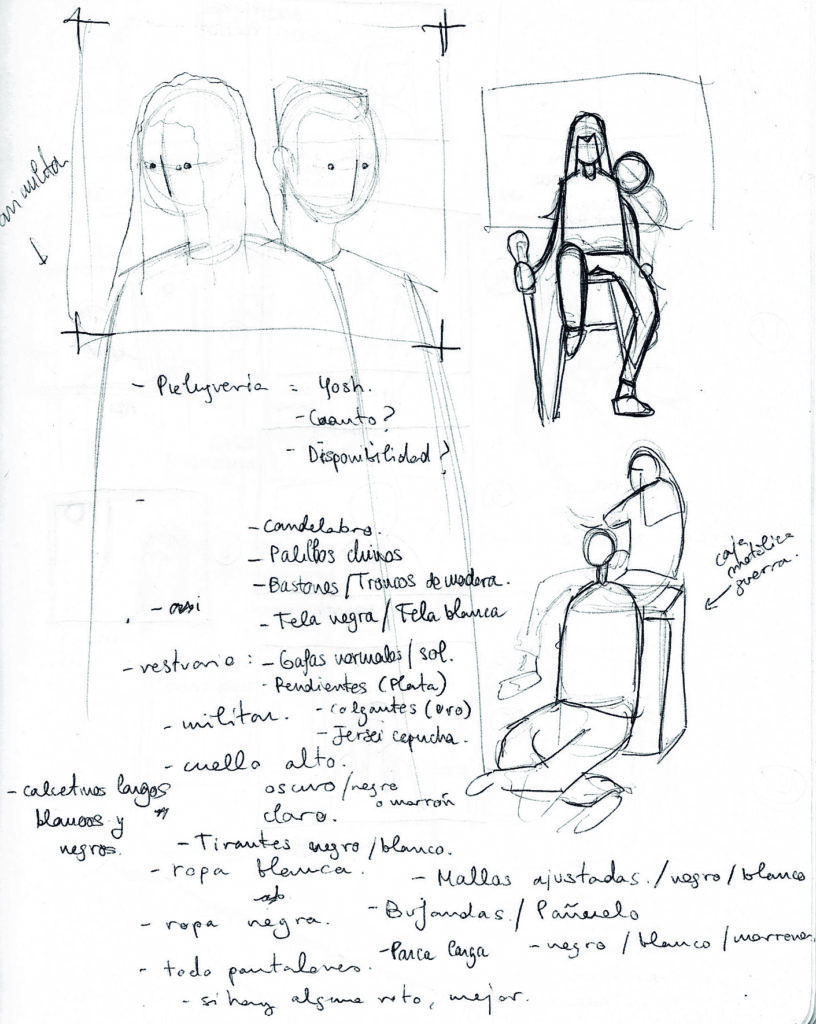 militar
- Peluqueria = Yosh.
- Cuanto?
- Disponibilidad?
-
- Candelabro.
- Palillos chinos
- Bastones / Troncos de madera.
- Tela negra / Tela blanca
caja
metálica
guerra.
- vestuario : - Gafas normales / sol.
- Pendientes (Plata)
- colgantes (oro)
- militar.
- Jersei capucha.
- cuello alto.
oscuro / negro
o marrón
claro.
- calcetines largos
blancos y
negros.
- Tirantes negro / blanco.
- ropa blanca.
- Mallas ajustadas. / negro / blanco
- ropa negra.
- Bufandas / Pañuelo
- Parca larga
- negro / blanco / marrones
- todo pantalones.
- si hay alguno roto, mejor.